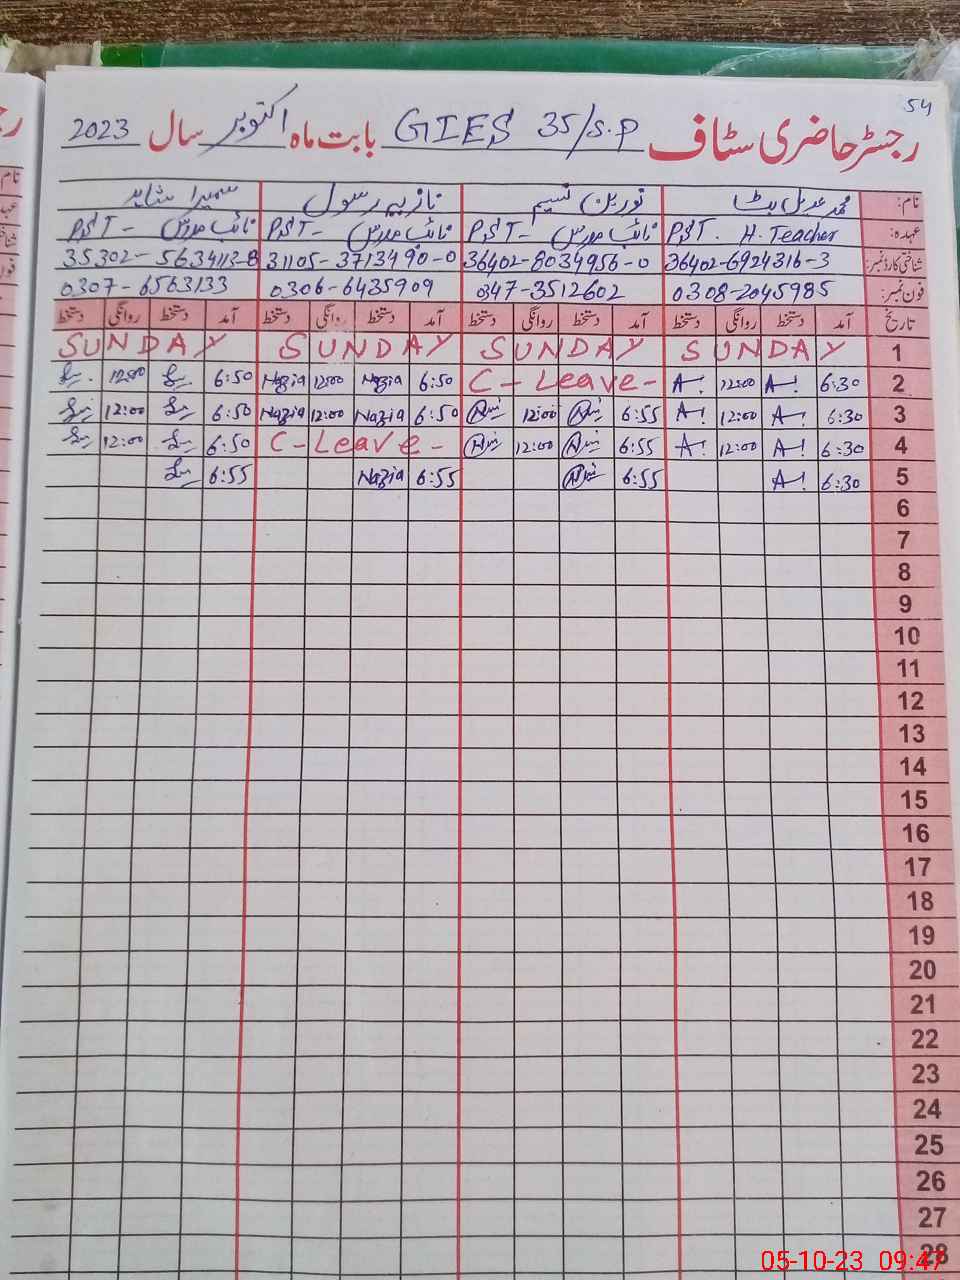 54
رجسٹر حاضری سٹاف GIES 35/S.P بابت ماہ اکتوبر سال 2023
نام: محمد عدیل بٹ نورین نسیم نازیہ رسول سمیرا شاہد
عہدہ: PST. H. Teacher PST- نائب مدرس PST- نائب مدرس PST- نائب مدرس
شناختی کارڈ نمبر: 36402-6924316-3 36402-8034956-0 31105-3713490-0 35302-5634113-8
فون نمبر: 0308-2045985 0347-3512602 0306-6435909 0307-6563133
تاریخ آمد دستخط روانگی دستخط آمد دستخط روانگی دستخط آمد دستخط روانگی دستخط آمد دستخط روانگی دستخط
1 SUNDAY SUNDAY SUNDAY SUNDAY
2 6:30 A! 12:00 A! C-Leave- 6:50 Nazia 12:00 Nazia 6:50 12:00
3 6:30 A! 12:00 A! 6:55 12:00 6:50 Nazia 12:00 Nazia 6:50 12:00
4 6:30 A! 12:00 A! 6:55 12:00 C-Leave- 6:50 12:00
5 6:30 A! 6:55 6:55 Nazia 6:55
6
7
8
9
10
11
12
13
14
15
16
17
18
19
20
21
22
23
24
25
26
27
28
05-10-23 09:47